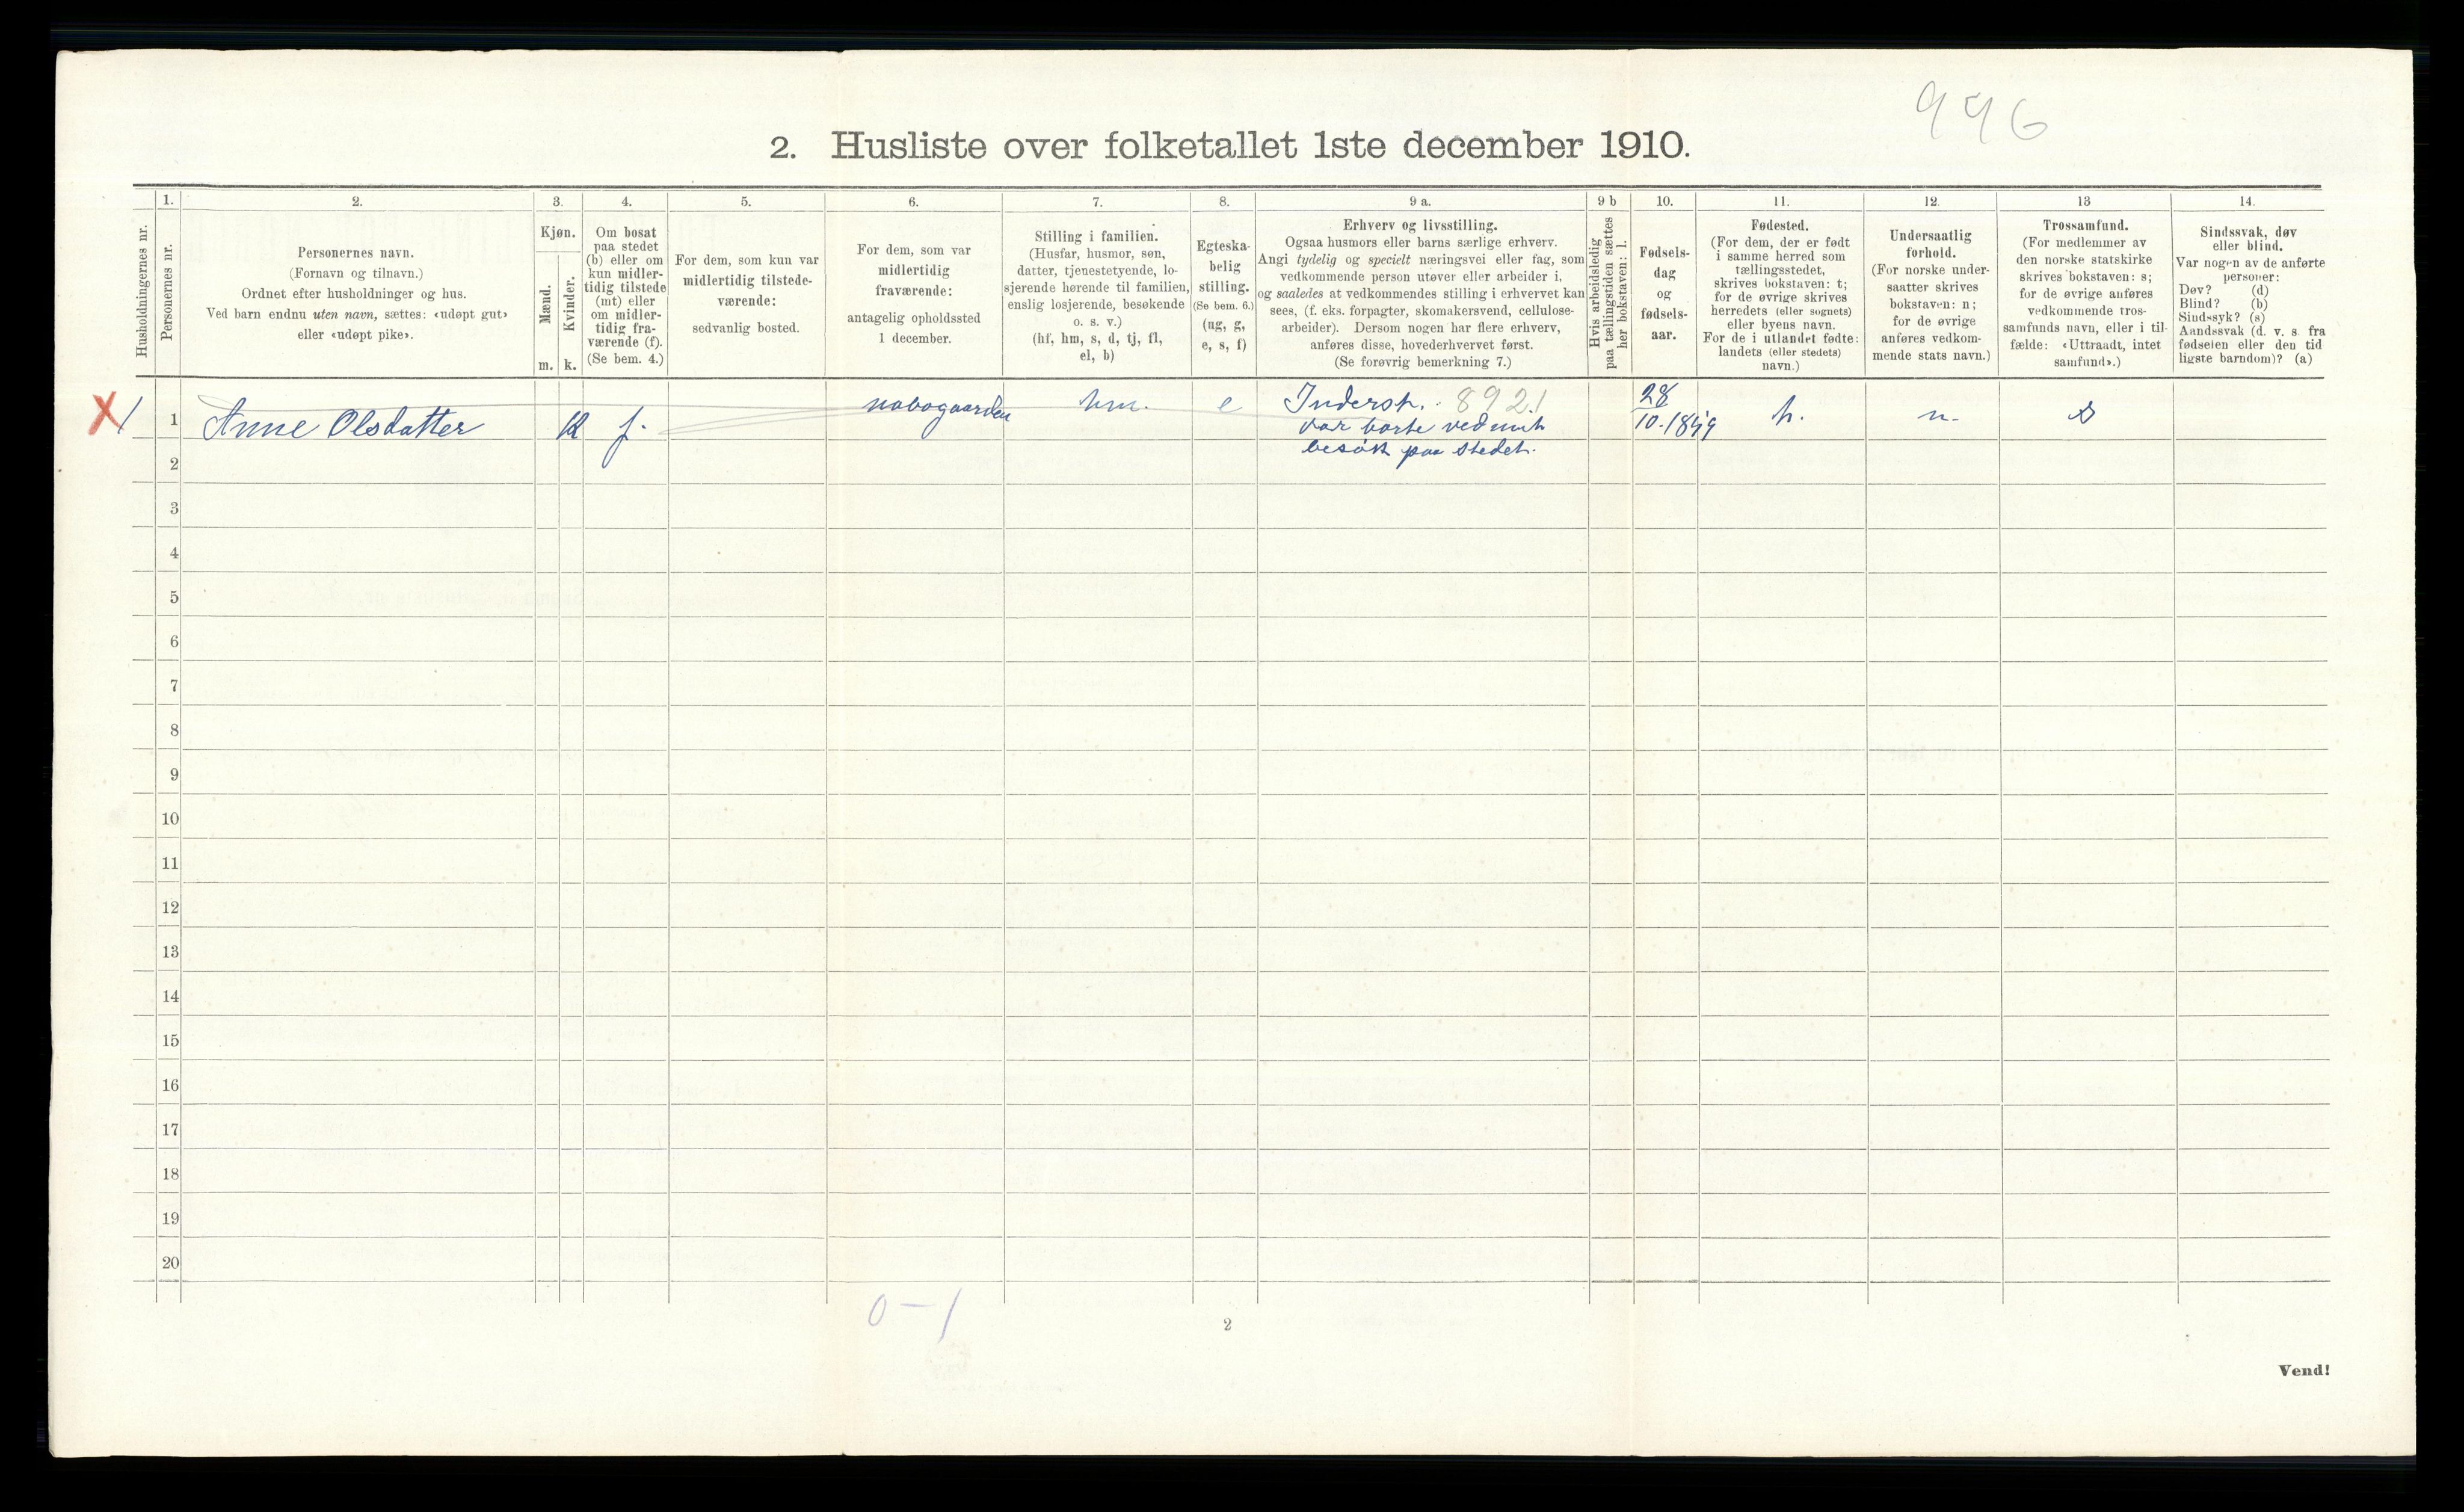 996
2. Husliste over folketallet 1ste december 1910.
Husholdningernes nr.
1.
Personernes nr.
2.
Personernes navn.
(Fornavn og tilnavn.)
Ordnet efter husholdninger og hus.
Ved barn endnu uten navn, sættes: «udøpt gut»
eller «udøpt pike».
3.
Kjøn.
Mænd.
m.
Kvinder.
k.
4.
Om bosat
paa stedet
(b) eller om
kun midler-
tidig tilstede
(mt) eller
om midler-
tidig fra-
værende (f).
(Se bem. 4.)
5.
For dem, som kun var
midlertidig tilstede-
værende:
sedvanlig bosted.
6.
For dem, som var
midlertidig
fraværende:
antagelig opholdssted
1 december.
7.
Stilling i familien.
(Husfar, husmor, søn,
datter, tjenestetyende, lo-
sjerende hørende til familien,
enslig losjerende, besøkende
o. s. v.)
(hf, hm, s, d, tj, fl,
el, b)
8.
Egteska-
belig
stilling.
(Se bem. 6.)
(ug, g,
e, s, f)
9 a.
Erhverv og livsstilling.
Ogsaa husmors eller barns særlige erhverv.
Angi tydelig og specielt næringsvei eller fag, som
vedkommende person utøver eller arbeider i,
og saaledes at vedkommendes stilling i erhvervet kan
sees, (f. eks. forpagter, skomakersvend, cellulose-
arbeider). Dersom nogen har flere erhverv,
anføres disse, hovederhvervet først.
(Se forøvrig bemerkning 7.)
9 b
Hvis arbeidsledig
paa tællingstiden sættes
her bokstaven: l.
10.
Fødsels-
dag
og
fødsels-
aar.
11.
Fødested.
(For dem, der er født
i samme herred som
tællingsstedet,
skrives bokstaven: t;
for de øvrige skrives
herredets (eller sognets)
eller byens navn.
For de i utlandet fødte:
landets (eller stedets)
navn.)
12.
Undersaatlig
forhold.
(For norske under-
saatter skrives
bokstaven: n;
for de øvrige
anføres vedkom-
mende stats navn.)
13
Trossamfund.
(For medlemmer av
den norske statskirke
skrives bokstaven: s;
for de øvrige anføres
vedkommende tros-
samfunds navn, eller i til-
fælde: «Uttraadt, intet
samfund».)
14.
Sindssvak, døv
eller blind.
Var nogen av de anførte
personer:
Døv? (d)
Blind? (b)
Sindssyk? (s)
Aandssvak (d. v. s. fra
fødselen eller den tid-
ligste barndom)? (a)
X 1 1 Anne Olsdatter K f. nabogaarden hm. e Inderst. 8921 28 n. s
10.
var borte ved mit
2 besøk paa stedet.
3
4
5
6
7
8
9
10
11
12
13
14
15
16
17
18
19
20
0 – 1
2
Vend!